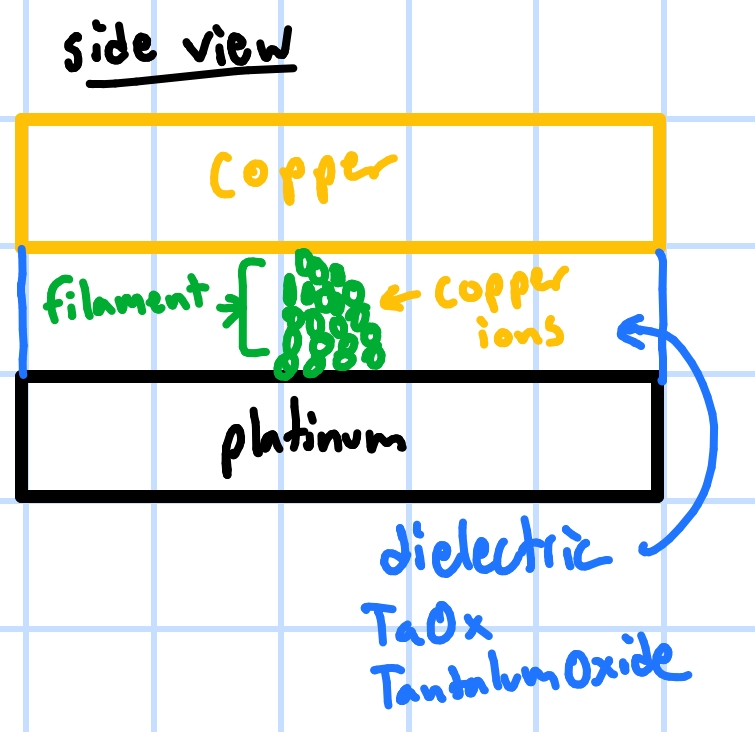 side view
copper
filament
copper
ions
platinum
dielectric
TaOx
Tantalum Oxide